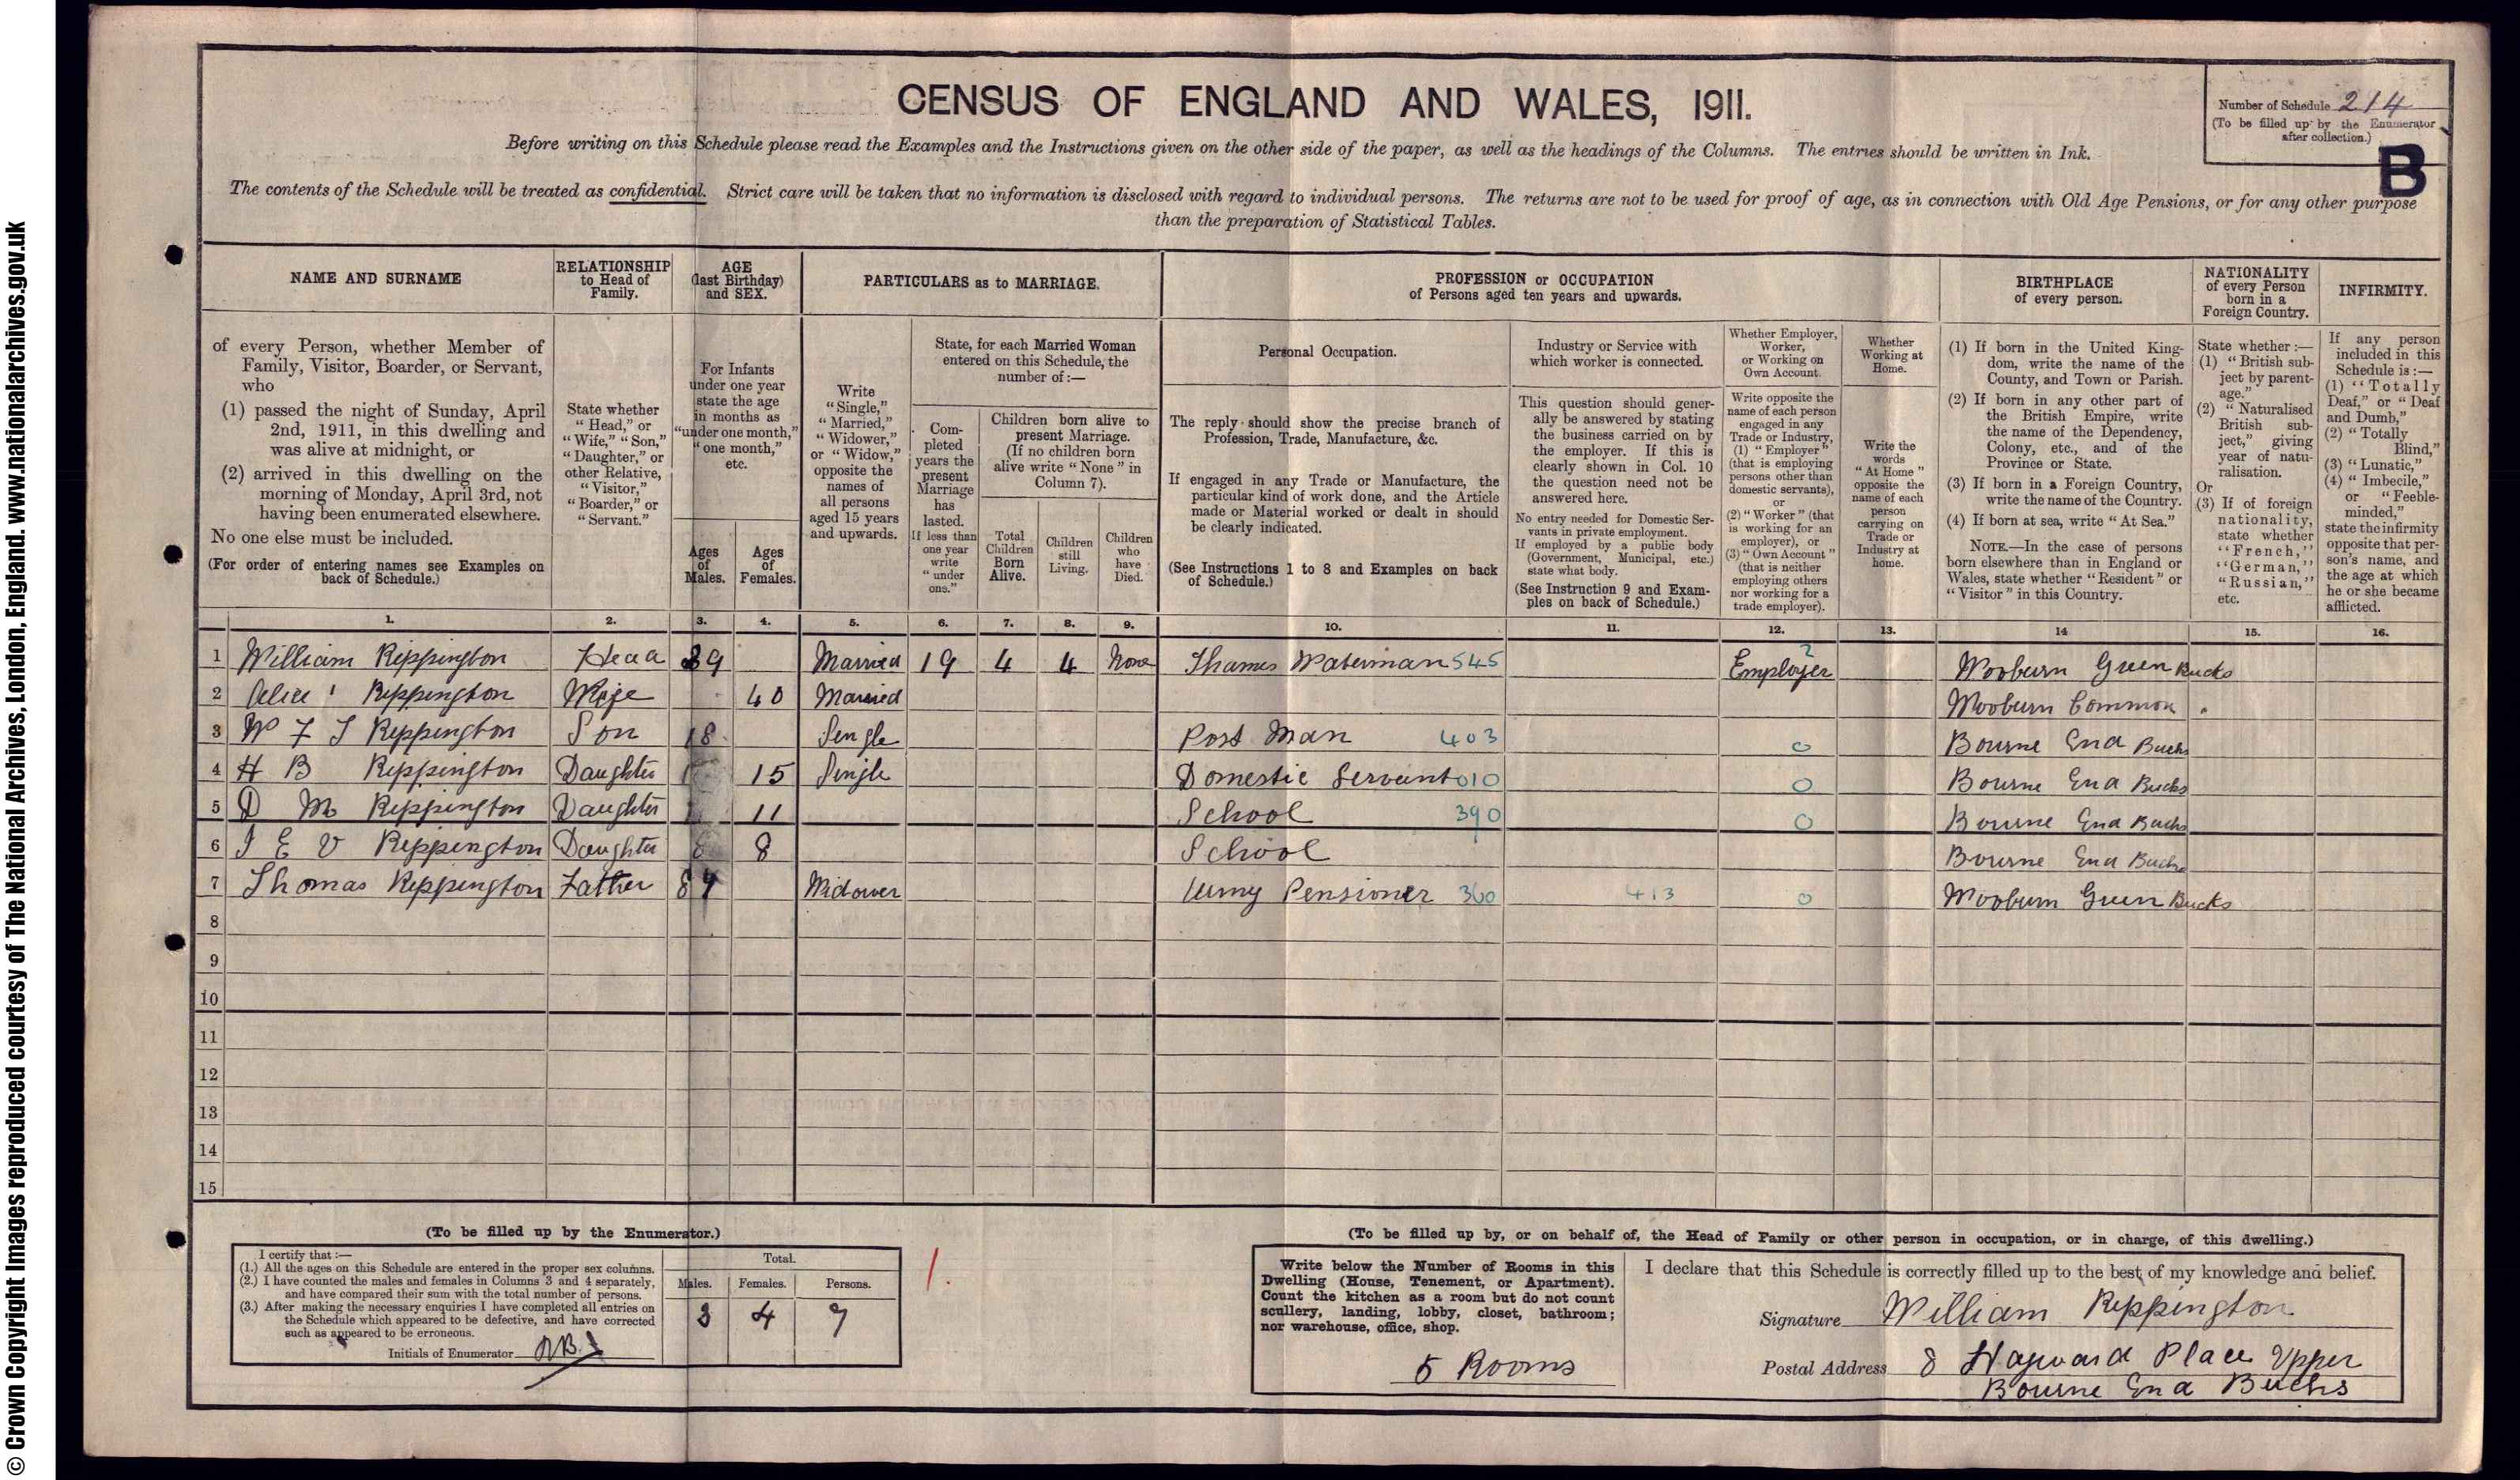 © Crown Copyright Images reproduced courtesy of The National Archives, London, England. www.nationalarchives.gov.uk
CENSUS OF ENGLAND AND WALES, 1911.
Number of Schedule 214
(To be filled up by the Enumerator after collection.)
B
Before writing on this Schedule please read the Examples and the Instructions given on the other side of the paper, as well as the headings of the Columns. The entries should be written in Ink.
The contents of the Schedule will be treated as confidential. Strict care will be taken that no information is disclosed with regard to individual persons. The returns are not to be used for proof of age, as in connection with Old Age Pensions, or for any other purpose
than the preparation of Statistical Tables.
NAME AND SURNAME
of every Person, whether Member of
Family, Visitor, Boarder, or Servant,
who
(1) passed the night of Sunday, April
2nd, 1911, in this dwelling and
was alive at midnight, or
(2) arrived in this dwelling on the
morning of Monday, April 3rd, not
having been enumerated elsewhere.
No one else must be included.
(For order of entering names see Examples on
back of Schedule.)
RELATIONSHIP
to Head of
Family.
State whether
"Head," or
"Wife," "Son,"
"Daughter," or
other Relative,
"Visitor,"
"Boarder," or
"Servant."
AGE
(last Birthday)
and SEX.
For Infants
under one year
state the age
in months as
"under one month,"
"one month,"
etc.
Ages
of
Males.
Ages
of
Females.
PARTICULARS as to MARRIAGE.
Write
"Single,"
"Married,"
"Widower,"
or "Widow,"
opposite the
names of
all persons
aged 15 years
and upwards.
State, for each Married Woman
entered on this Schedule, the
number of:—
Com-
pleted
years the
present
Marriage
has
lasted.
If less than
one year
write
"under
one."
Children born alive to
present Marriage.
(If no children born
alive write "None" in
Column 7).
Total
Children
Born
Alive.
Children
still
Living.
Children
who
have
Died.
PROFESSION or OCCUPATION
of Persons aged ten years and upwards.
Personal Occupation.
The reply should show the precise branch of
Profession, Trade, Manufacture, &c.
If engaged in any Trade or Manufacture, the
particular kind of work done, and the Article
made or Material worked or dealt in should
be clearly indicated.
(See Instructions 1 to 8 and Examples on back
of Schedule.)
Industry or Service with
which worker is connected.
This question should gener-
ally be answered by stating
the business carried on by
the employer. If this is
clearly shown in Col. 10
the question need not be
answered here.
No entry needed for Domestic Ser-
vants in private employment.
If employed by a public body
(Government, Municipal, etc.)
state what body.
(See Instruction 9 and Exam-
ples on back of Schedule.)
Whether Employer,
Worker,
or Working on
Own Account.
Write opposite the
name of each person
engaged in any
Trade or Industry,
(1) "Employer"
(that is employing
persons other than
domestic servants),
or
(2) "Worker" (that
is working for an
employer), or
(3) "Own Account"
(that is neither
employing others
nor working for a
trade employer).
Whether
Working at
Home.
Write the
words
"At Home"
opposite the
name of each
person
carrying on
Trade or
Industry at
home.
BIRTHPLACE
of every person.
(1) If born in the United King-
dom, write the name of the
County, and Town or Parish.
(2) If born in any other part of
the British Empire, write
the name of the Dependency,
Colony, etc., and of the
Province or State.
(3) If born in a Foreign Country,
write the name of the Country.
(4) If born at sea, write "At Sea."
NOTE.—In the case of persons
born elsewhere than in England or
Wales, state whether "Resident" or
"Visitor" in this Country.
NATIONALITY
of every Person
born in a
Foreign Country.
State whether:—
(1) "British sub-
ject by parent-
age."
(2) "Naturalised
British sub-
ject," giving
year of natu-
ralisation.
Or
(3) If of foreign
nationality,
state whether
"French,"
"German,"
"Russian,"
etc.
INFIRMITY.
If any person
included in this
Schedule is:—
(1) "Totally
Deaf," or "Deaf
and Dumb,"
(2) "Totally
Blind,"
(3) "Lunatic,"
(4) "Imbecile,"
or "Feeble-
minded,"
state the infirmity
opposite that per-
son's name, and
the age at which
he or she became
afflicted.
1. 2. 3. 4. 5. 6. 7. 8. 9. 10. 11. 12. 13. 14 15. 16.
1 William Rippington Head 39 Married 19 4 4 None Thames Waterman 545 Employer 2 Wooburn Green Bucks
2 Alice Rippington Wife 40 Married Wooburn Common
3 W F J Rippington Son 18 Single Post Man 403 0 Bourne End Bucks
4 H B Rippington Daughter 15 Single Domestic Servant 010 0 Bourne End Bucks
5 D M Rippington Daughter 11 School 390 0 Bourne End Bucks
6 I E V Rippington Daughter 8 School Bourne End Bucks
7 Thomas Rippington Father Widower Army Pensioner 360 413 0 Wooburn Green Bucks
8
9
10
11
12
13
14
15
(To be filled up by the Enumerator.)
I certify that:—
(1.) All the ages on this Schedule are entered in the proper sex columns.
(2.) I have counted the males and females in Columns 3 and 4 separately,
and have compared their sum with the total number of persons.
(3.) After making the necessary enquiries I have completed all entries on
the Schedule which appeared to be defective, and have corrected
such as appeared to be erroneous.
Initials of Enumerator
Total.
Males. Females. Persons.
3 4 7
1.
(To be filled up by, or on behalf of, the Head of Family or other person in occupation, or in charge, of this dwelling.)
Write below the Number of Rooms in this
Dwelling (House, Tenement, or Apartment).
Count the kitchen as a room but do not count
scullery, landing, lobby, closet, bathroom;
nor warehouse, office, shop.
5 Rooms
I declare that this Schedule is correctly filled up to the best of my knowledge and belief.
Signature William Rippington
Postal Address 8 Hayward Place Upper
Bourne End Bucks